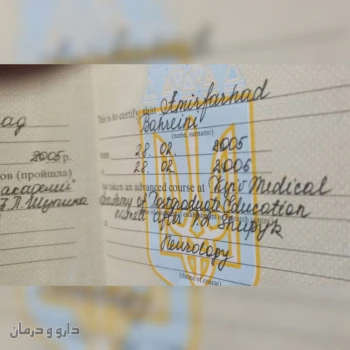 ад
2005р.
ов (пройшла)
академії
П.Л.Шупика
This is to certify that Amirfarhad
Bahreini
(name, surname)
from 28. 02. 2005
28. 02. 2006
has taken an advanced course at Kyiv Medical
Academy of Postgraduate Education
named after P.L Shupyk
Neurology
(name of course)
دارو و درمان